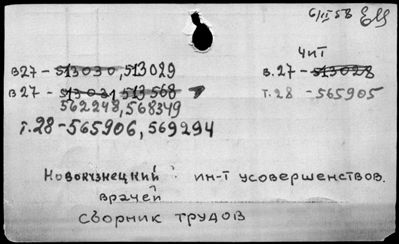 6/II 58
чит
в27 - 513030, 513029
в.27 - 513028
в27 - 513031 513568
т.28 - 565905
562248, 568349
т.28 - 565906, 569294
Новокузнецкий ин-т усовершенствов.
врачей
сборник трудов